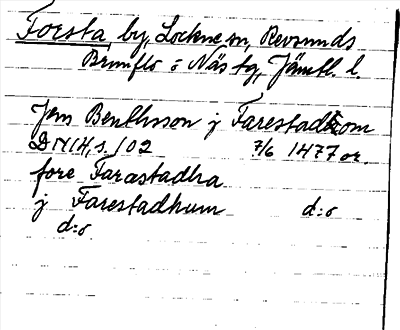 Forsta, by, Lockne sn, Revsunds
Brunflo o Näs tg, Jämtl. l.
Jens Benthsson j Farestadhom
DMH, s. 102 7/6 1477 or.
fore Farastadha
j Farestadhum d:o
d:o